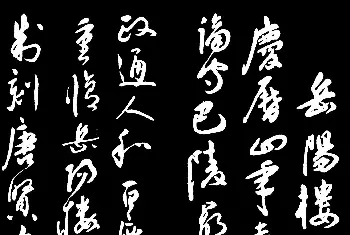 岳陽樓
慶曆四年
謫守巴陵郡
政通人和百
重修岳陽樓
制刻唐賢